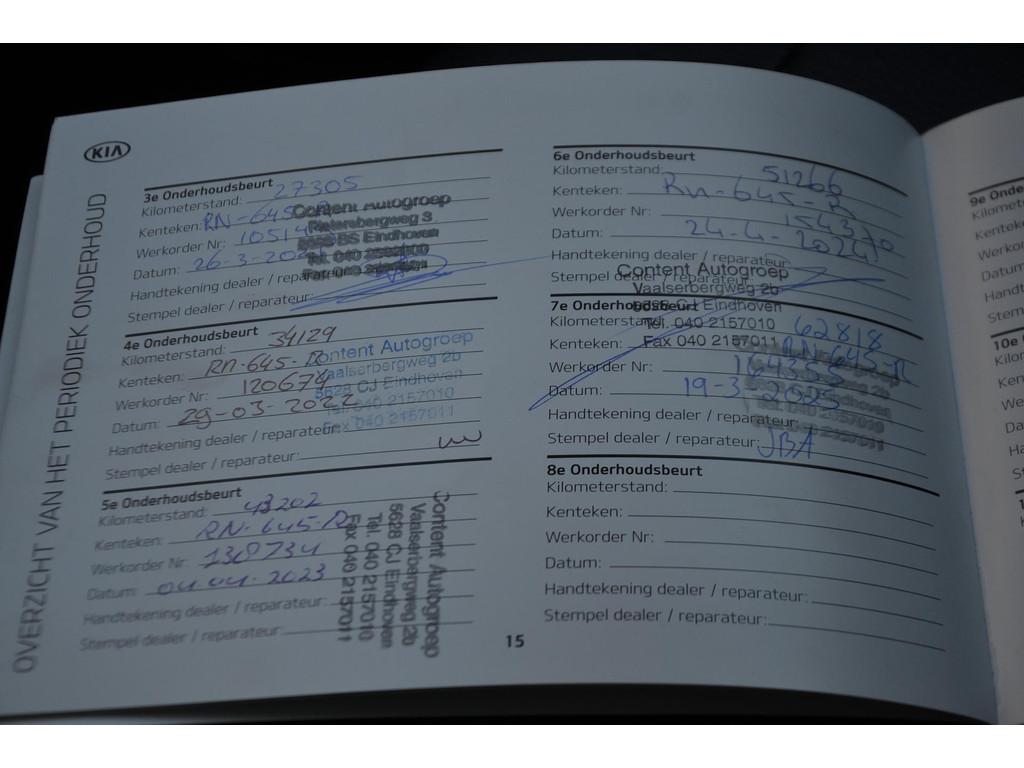 KIA
OVERZICHT VAN HET PERIODIEK ONDERHOUD
3e Onderhoudsbeurt
Kilometerstand: 27305
Kenteken: RN-645-R
Werkorder Nr: 10514
Datum: 26-3-202
Handtekening dealer / reparateur:
Stempel dealer / reparateur:
Content Autogroep
Eindhoven
4e Onderhoudsbeurt
Kilometerstand: 34129
Kenteken: RN-645-R
Werkorder Nr: 120674
Datum: 29-03-2022
Handtekening dealer / reparateur:
Stempel dealer / reparateur:
Content Autogroep
Vaalserbergweg 2b
5628 CJ Eindhoven
Tel. 040 2157010
Fax 040 2157011
5e Onderhoudsbeurt
Kilometerstand: 43202
Kenteken: RN-645-R
Werkorder Nr: 138734
Datum: 04-04-2023
Handtekening dealer / reparateur:
Stempel dealer / reparateur:
Content Autogroep
Vaalserbergweg 2b
5628 CJ Eindhoven
Tel. 040 2157010
Fax 040 2157011
6e Onderhoudsbeurt
Kilometerstand: 51266
Kenteken: RN-645-R
Werkorder Nr: 154370
Datum: 24-4-2024
Handtekening dealer / reparateur:
Stempel dealer / reparateur:
Content Autogroep
Vaalserbergweg 2b
5628 CJ Eindhoven
Tel. 040 2157010
Fax 040 2157011
7e Onderhoudsbeurt
Kilometerstand: 62818
Kenteken: RN-645-R
Werkorder Nr: 164355
Datum: 19-3-2025
Handtekening dealer / reparateur:
Stempel dealer / reparateur: JBA
8e Onderhoudsbeurt
Kilometerstand:
Kenteken:
Werkorder Nr:
Datum:
Handtekening dealer / reparateur:
Stempel dealer / reparateur:
15
9e Onde
Kilomet
Kentek
Werko
Datum
Hand
Stem
10e
Kilo
Ke
We
Da
Ha
St